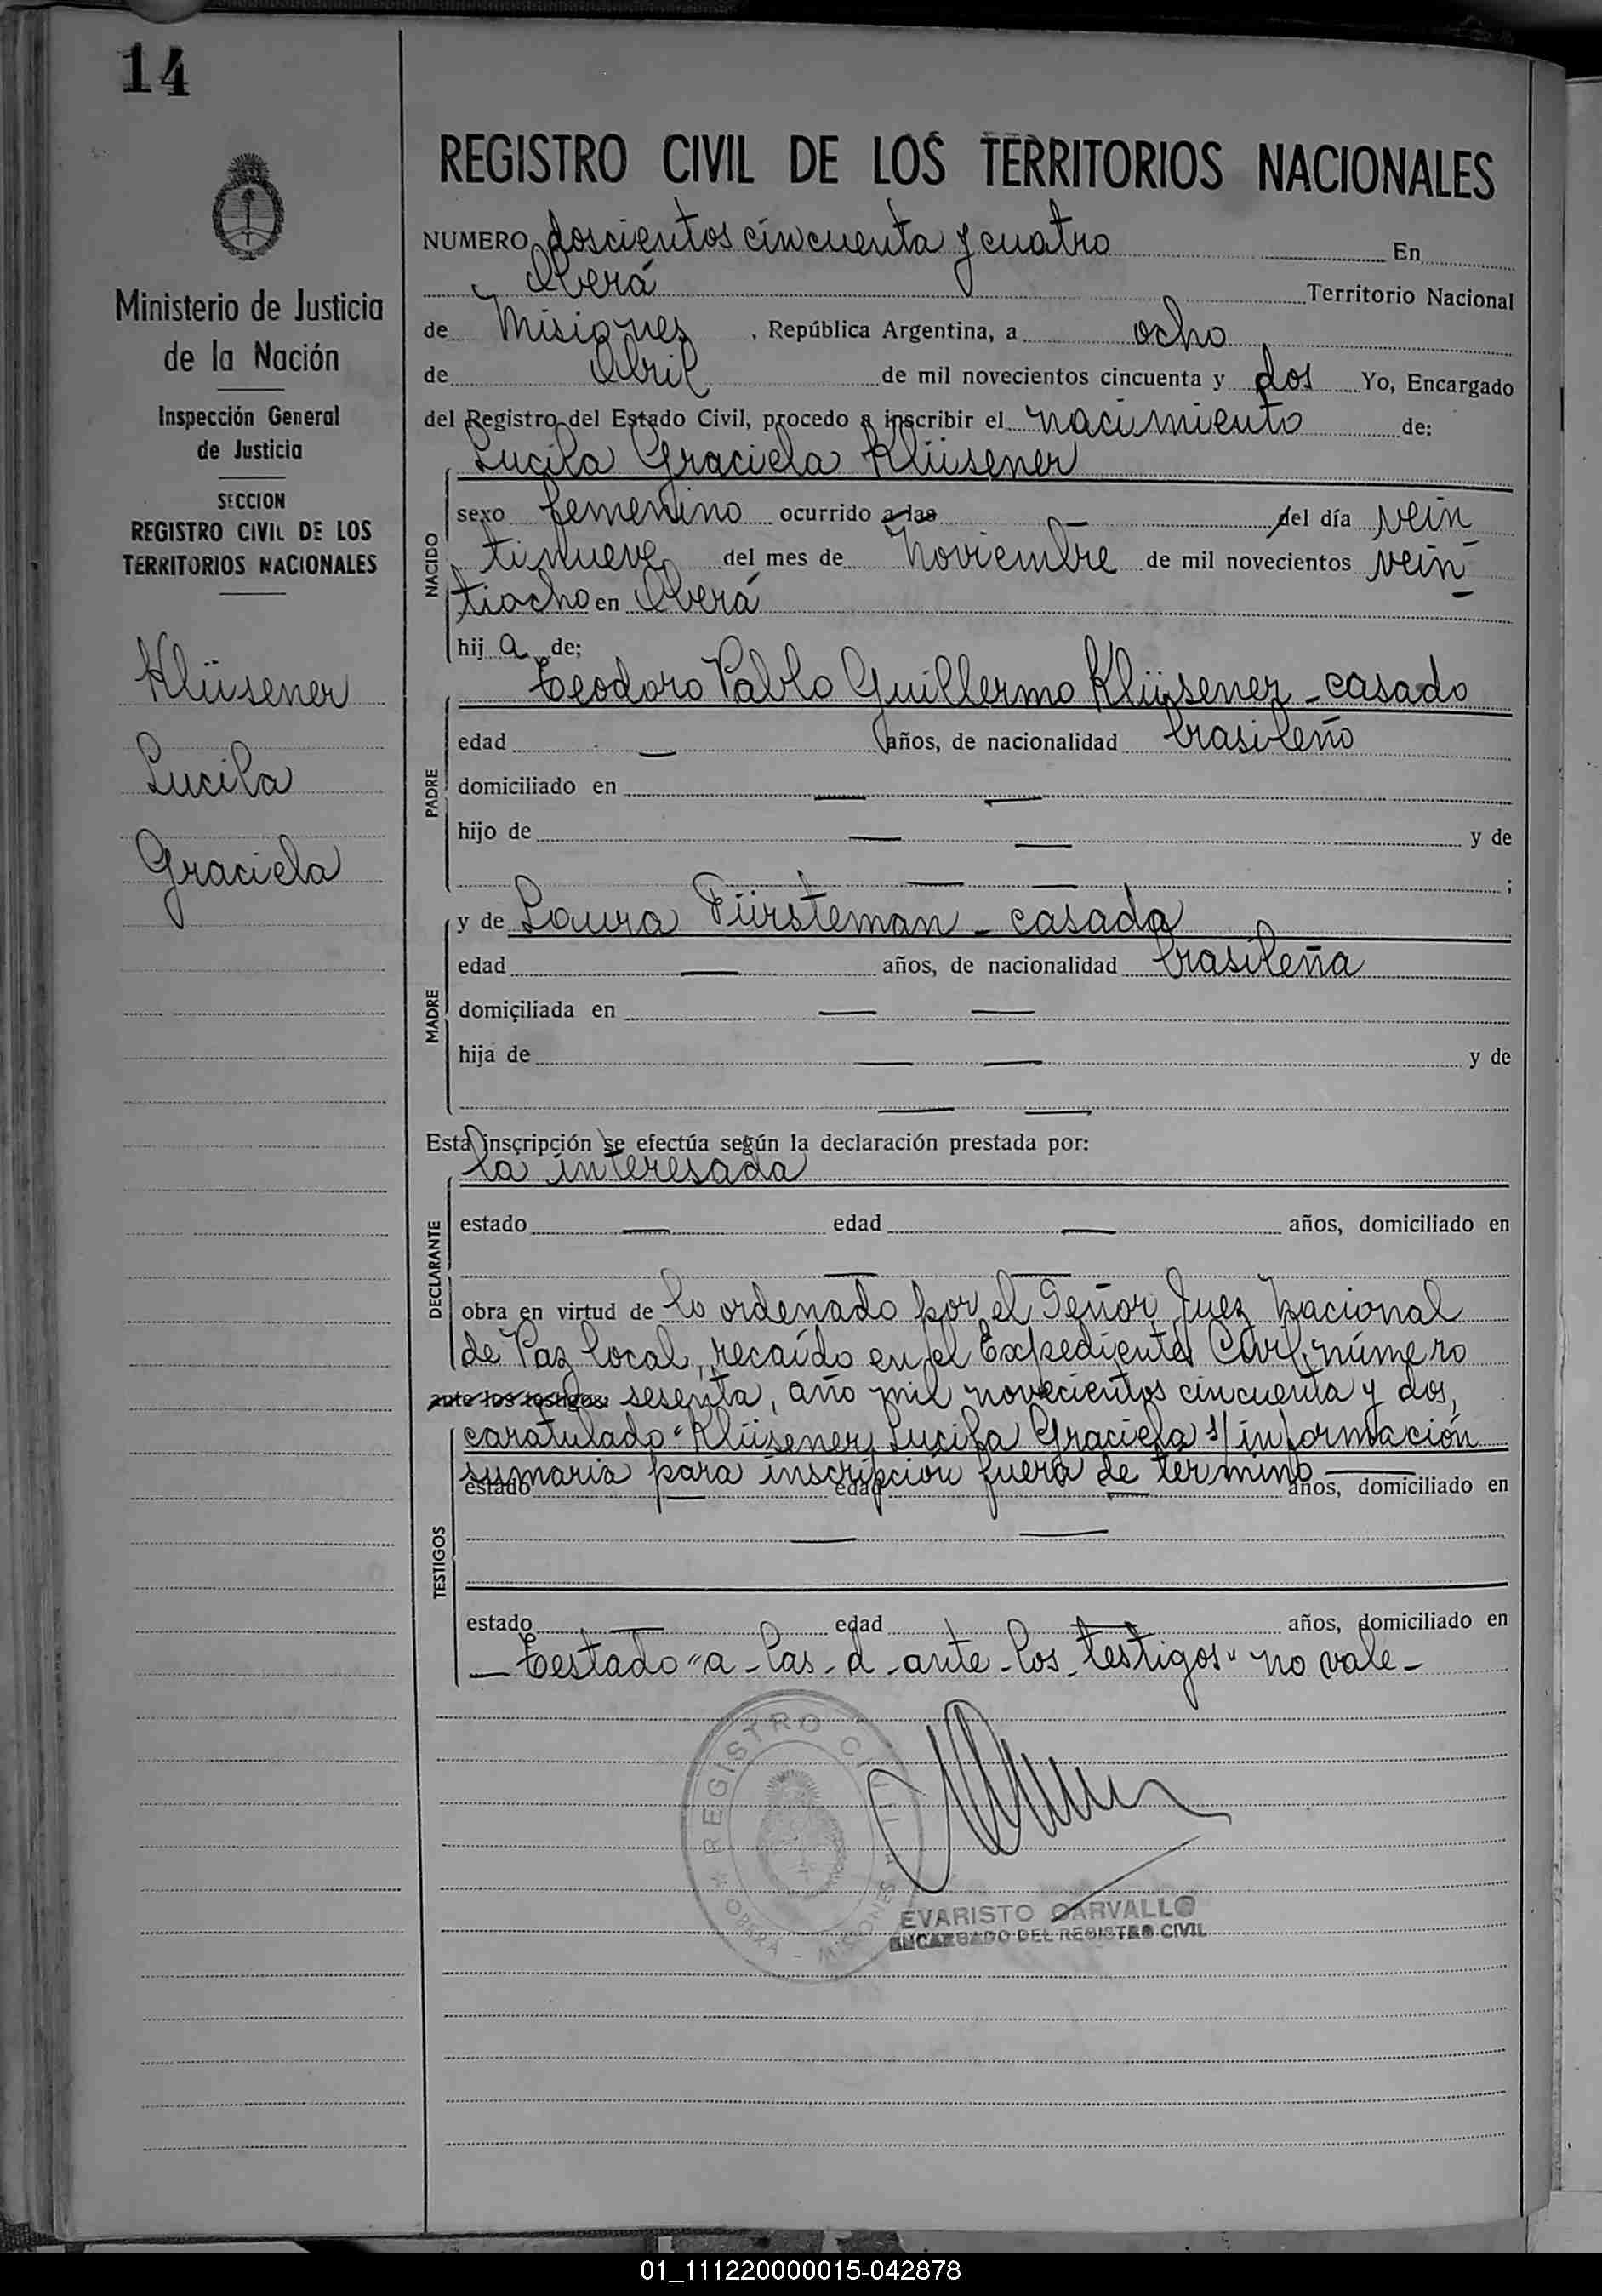 14
REGISTRO CIVIL DE LOS TERRITORIOS NACIONALES
Ministerio de Justicia
de la Nación
Inspección General
de Justicia
SECCION
REGISTRO CIVIL DE LOS
TERRITORIOS NACIONALES
Klüsener
Lucila
Graciela
NUMERO doscientos cincuenta y cuatro En
Oberá Territorio Nacional
de Misiones, República Argentina, a ocho
de Abril de mil novecientos cincuenta y dos Yo, Encargado
del Registro del Estado Civil, procedo a inscribir el nacimiento de:
Lucila Graciela Klüsener
NACIDO
sexo femenino ocurrido a las — del día vein
tinueve del mes de Noviembre de mil novecientos vein
tiocho en Oberá
hij a de:
Teodoro Pablo Guillermo Klüsener - casado
PADRE
edad — años, de nacionalidad brasileño
domiciliado en — —
hijo de — — y de
— — ;
y de Laura Fürsteman - casada
MADRE
edad — años, de nacionalidad brasileña
domiciliada en — —
hija de — — y de
— —
Esta inscripción se efectúa según la declaración prestada por:
la interesada
DECLARANTE
estado — edad — años, domiciliado en
— —
obra en virtud de lo ordenado por el Señor Juez Nacional
de Paz local, recaído en el Expediente Civil número
ante los testigos: sesenta, año mil novecientos cincuenta y dos,
caratulado "Klüsener Lucila Graciela s/ información
sumaria para inscripción fuera de termino —
TESTIGOS
estado — edad — años, domiciliado en
— —
estado — edad — años, domiciliado en
— Testado "a - las - d - ante - los - testigos" no vale -
REGISTRO CIVIL
OBERA - MISIONES
EVARISTO CARVALLO
ENCARGADO DEL REGISTRO CIVIL
01_111220000015-042878